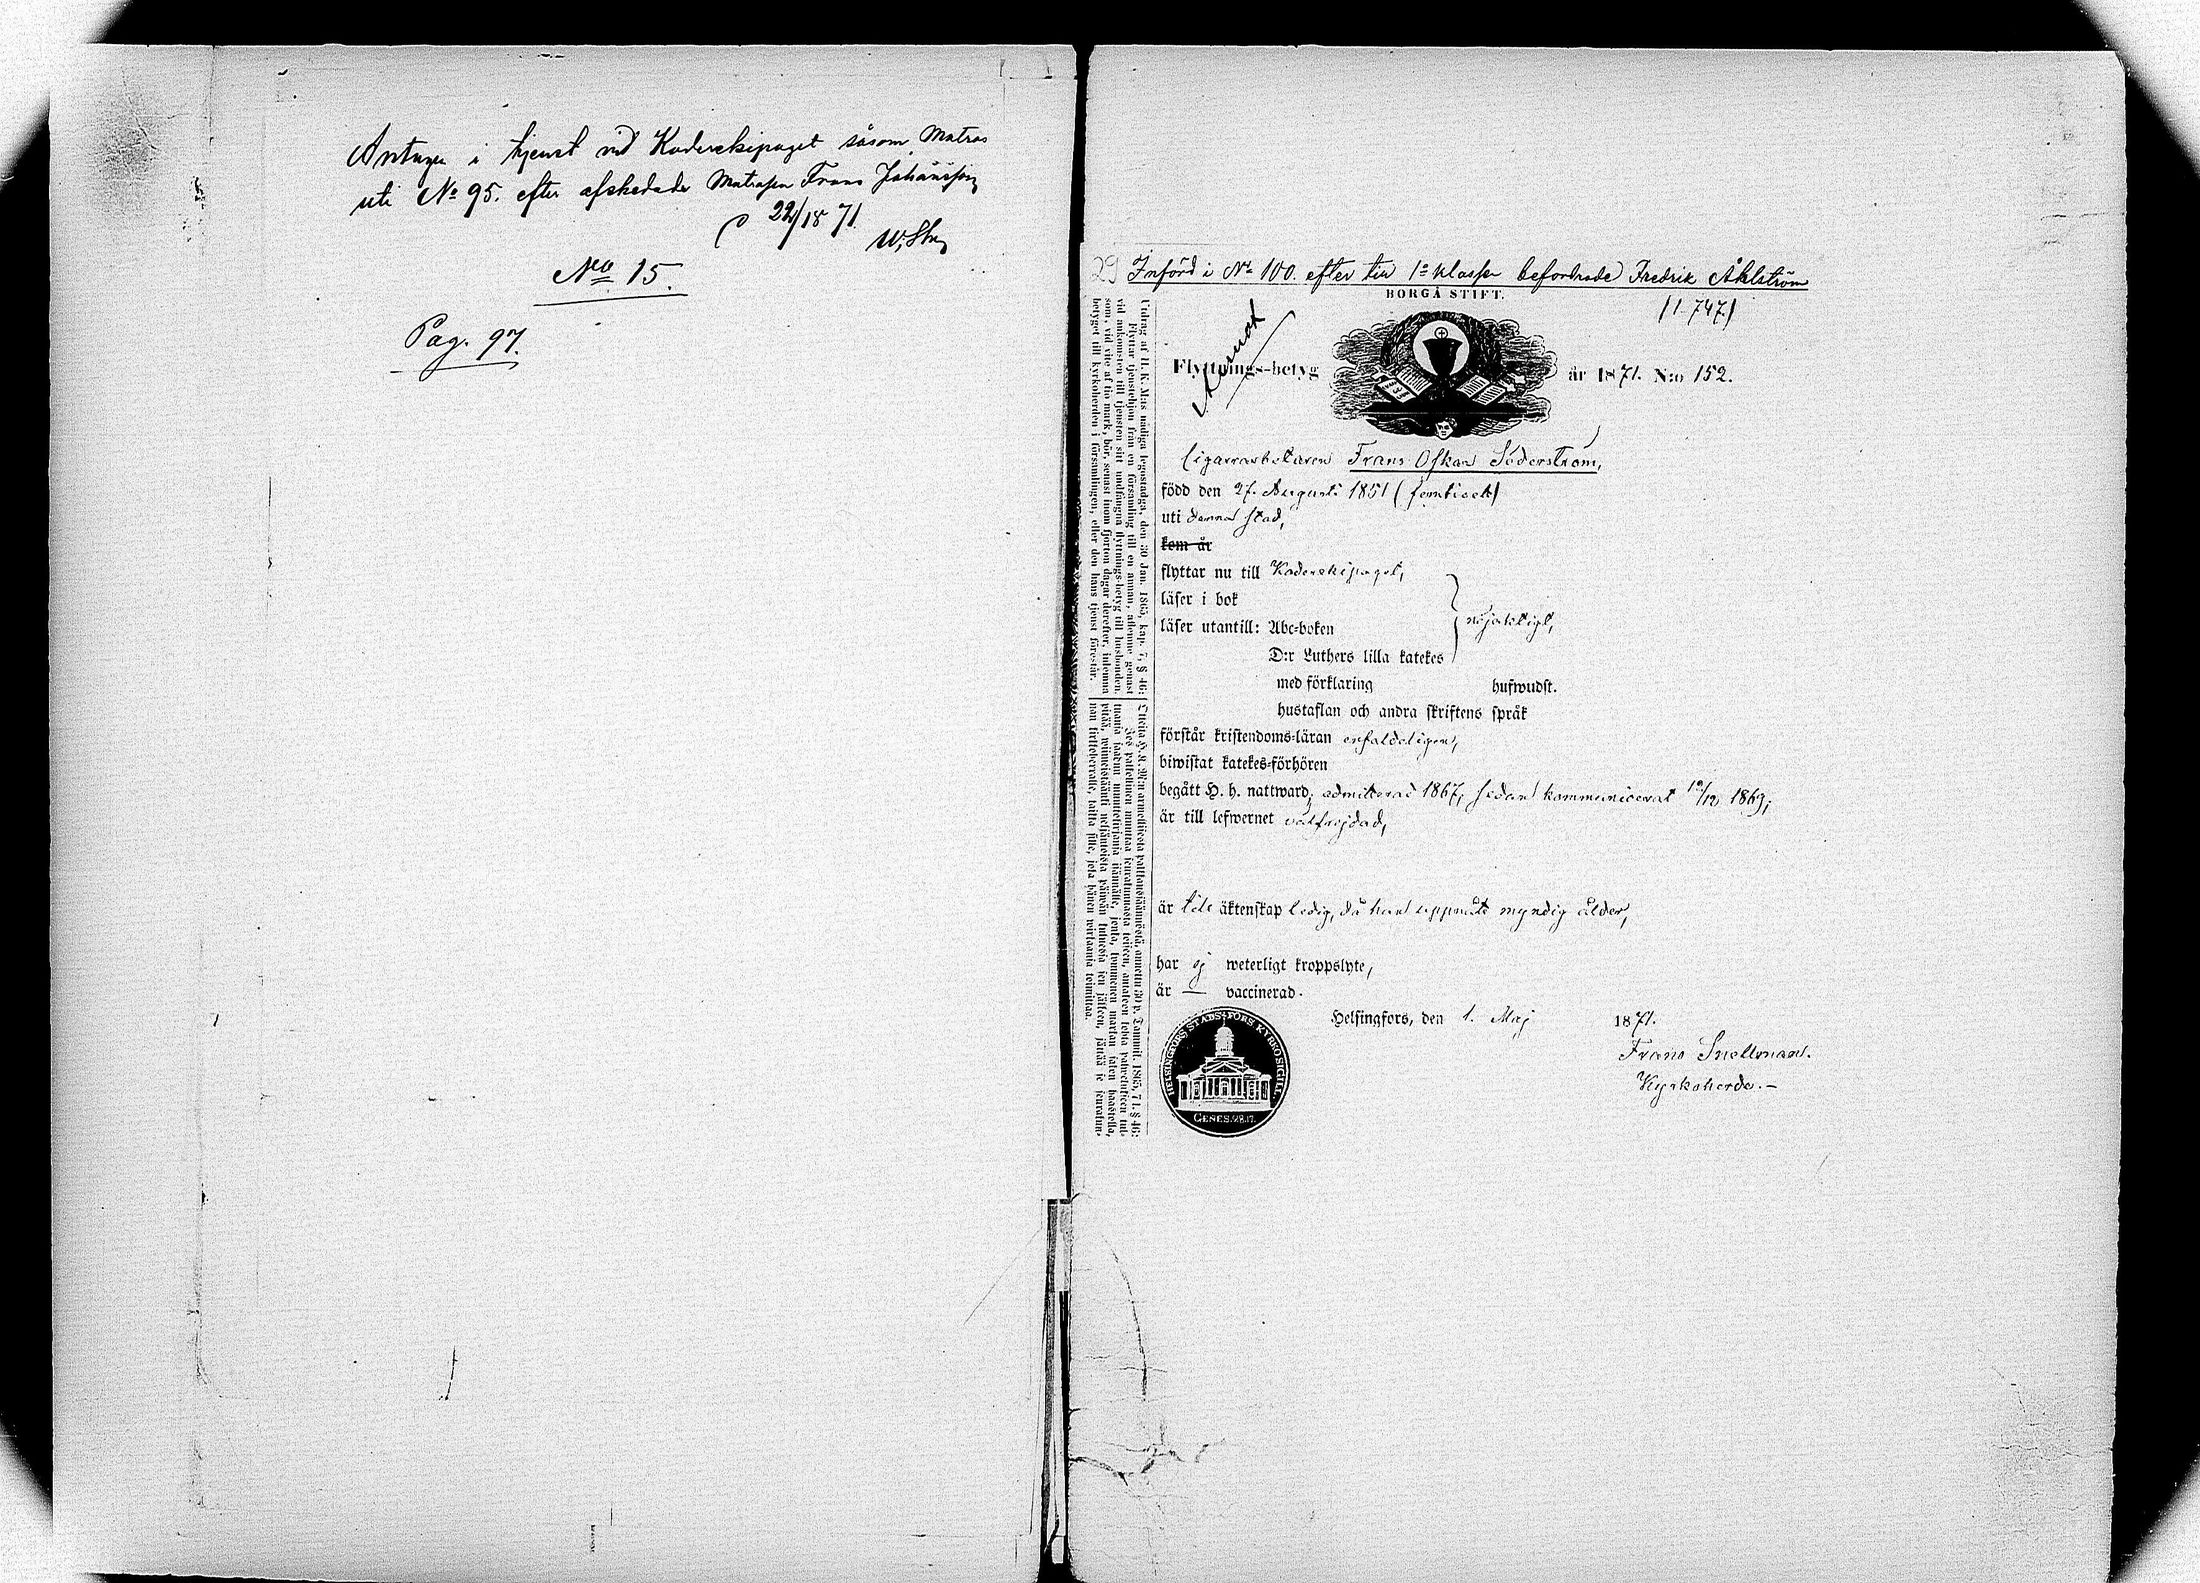 Antagen i tjenst vid Kaderskipaget såsom Matros
uti No 95. efter afskedade Matrosen Frans Johansson
22/18 71.
No 15.
Pag. 97.
29 Införd i No 100. efter till 1a klassen befordrade Fredrik Åhlström
BORGÅ STIFT.
(1-747.)
Flyttnings-betyg år 1871. N:o 152.
Cigarrarbetaren Frans Oskar Söderström,
född den 27. Augusti 1851 (femtioett)
uti denna stad,
kom år
flyttar nu till Kaderskipaget,
läser i bok
läser utantill: Abc-boken
nöjaktigt,
D:r Luthers lilla katekes
med förklaring hufwudst.
hustaflan och andra skriftens språk
förstår kristendoms-läran enfaldeligen,
biwistat katekes-förhören
begått H. h. nattward; admitterad 1867, sedan kommunicerat 19/12 1869;
är till lefwernet välfrejdad,
är till äktenskap ledig, då han uppnått myndig ålder,
har ej weterligt kroppslyte,
är — vaccinerad.
Helsingfors, den 1. Maj 1871.
Frans Snellman.
Kyrkoherde.-
HELSINGFORS STADS-FÖRS. KYRKO SIGILL.
GENES. 28.17.
Utdrag af H. K. M:ts nådiga legostadga, den 30 Jan. 1865, kap. 7, § 46:
Flyttar tjenstehjon från en församling till en annan, aflemne genast
vid ankomsten till tjensten sitt undfångna flyttnings-betyg till husbonden,
som, vid vite af tio mark, bör, senast inom fjorton dagar derefter, inlemna
betyget till kyrkoherden i församlingen, eller den hans tjenst förestår.